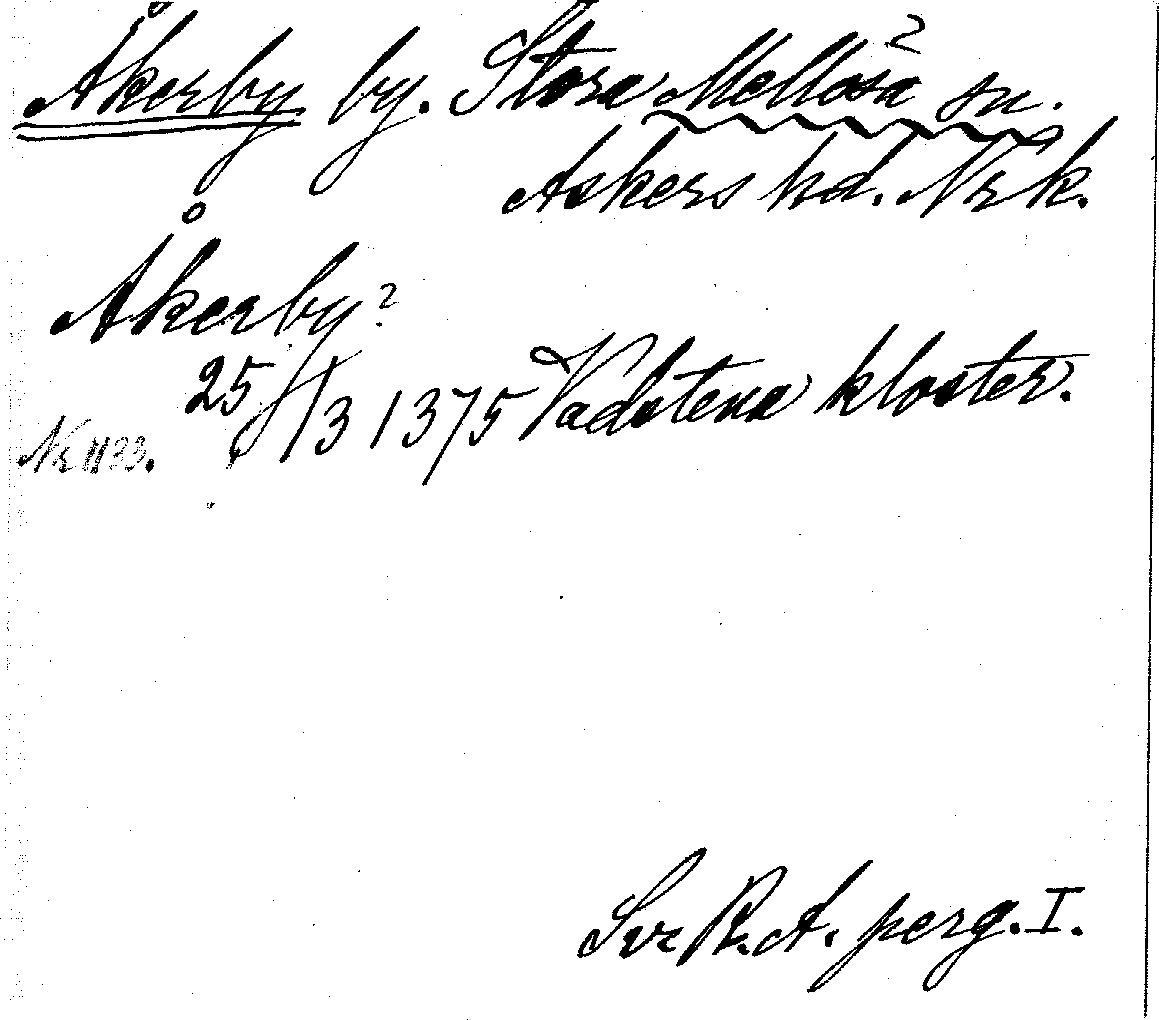 Åkerby by. Stora Mellösa 2 sn.
Askers hd. Nrk.
Åkerby?
25/3 1375 Vadstena kloster.
Nr 1133.
Sv R.A. perg. I.